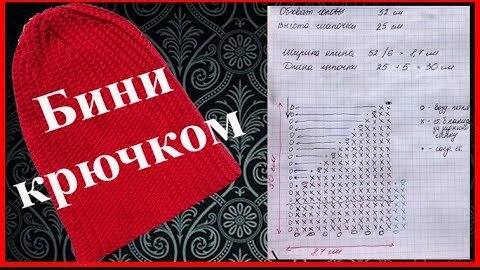 Бини
крючком
Обхват головы 52 см
Высота шапочки 25 см
Ширина клина 52/6 = 8,7 см
Длина цепочки 25 + 5 = 30 см
о - возд. петля
х - ст. б. накида
за заднюю
стенку
• - соед. ст.
30 см
8,7 см